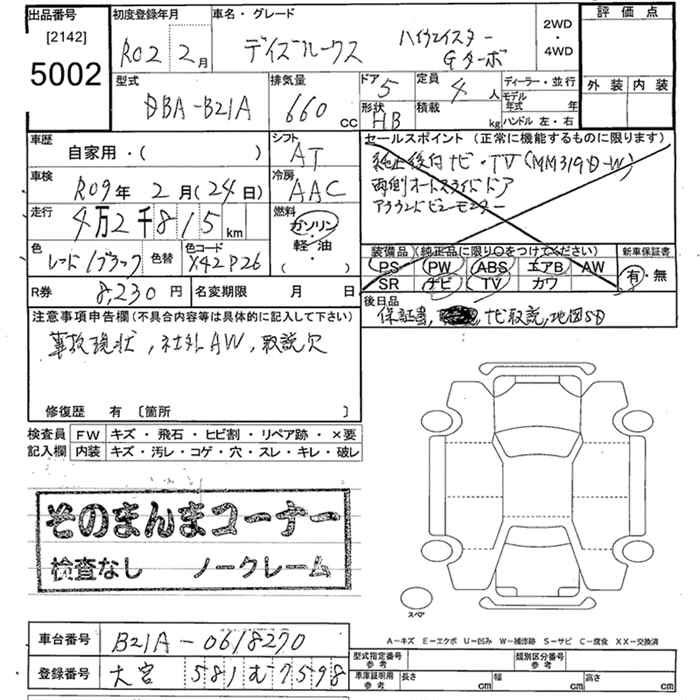 出品番号 初度登録年月 車名・グレード 評価点
[2142]
5002
R02 2月 デイズルークス ハイウェイスター Gターボ 2WD・4WD
外装 内装
型式 排気量 ドア 定員 ディーラー・並行
DBA-B21A 660 CC 5 4人 モデル年式 年
形状 積載 ハンドル 左・右
HB kg
車歴 シフト セールスポイント (正常に機能するものに限ります)
自家用・( ) AT 純正後付ナビ・TV(MM319D-W)
車検 冷房 両側オートスライドドア
R09年 2月(24日) AAC アラウンドビューモニター
走行 燃料
4万2千815km ガソリン・軽油・( )
色 色替 色コード 装備品 (純正品に限り○をつけてください) 新車保証書
レッド/ブラック X42P26 PS PW ABS エアB AW 有・無
SR ナビ TV カワ
R券 8,230円 名変期限 月 日 後日品
保証書, ナビ取説,地図SD
注意事項申告欄(不具合内容等は具体的に記入して下さい)
事故現状,社外AW,取説欠
修復歴 有 [箇所 ]
検査員 FW キズ・飛石・ヒビ割・リペア跡・×要
記入欄 内装 キズ・汚レ・コゲ・穴・スレ・キレ・破レ
そのまんまコーナー
検査なし ノークレーム
スペア
A-キズ E-エクボ U-凹み W-補修跡 S-サビ C-腐食 XX-交換済
車台番号 B21A-0618270
型式指定番号 参考 類別区分番号 参考
登録番号 大宮 581 む 7598
車庫証明用 参考 長さ cm 幅 cm 高さ cm